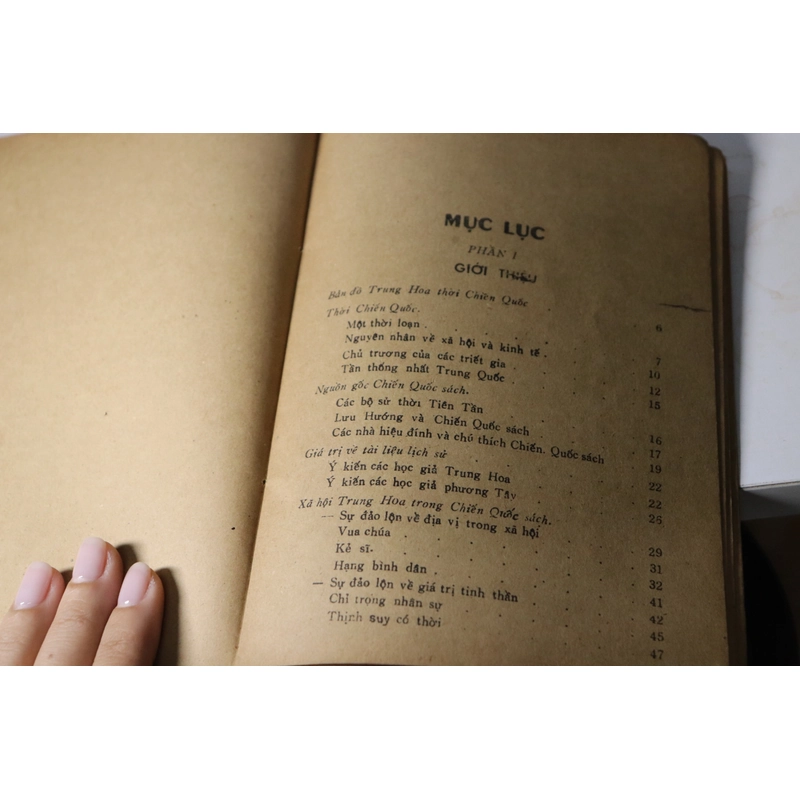 MỤC LỤC
PHẦN I
GIỚI THIỆU
Bản đồ Trung Hoa thời Chiến Quốc . 6
Thời Chiến Quốc.
Một thời loạn . 7
Nguyên nhân về xã hội và kinh tế . 10
Chủ trương của các triết gia . 12
Tần thống nhất Trung Quốc . 15
Nguồn gốc Chiến Quốc sách.
Các bộ sử thời Tiên Tần 16
Lưu Hướng và Chiến Quốc sách 17
Các nhà hiệu đính và chú thích Chiến. Quốc sách 19
Giá trị về tài liệu lịch sử 22
Ý kiến các học giả Trung Hoa 22
Ý kiến các học giả phương Tây 26
Xã hội Trung Hoa trong Chiến Quốc sách.
— Sự đảo lộn về địa vị trong xã hội 29
Vua chúa 31
Kẻ sĩ. 32
Hạng bình dân . 41
— Sự đảo lộn về giá trị tinh thần 42
Chỉ trọng nhân sự 45
Thịnh suy có thời 47